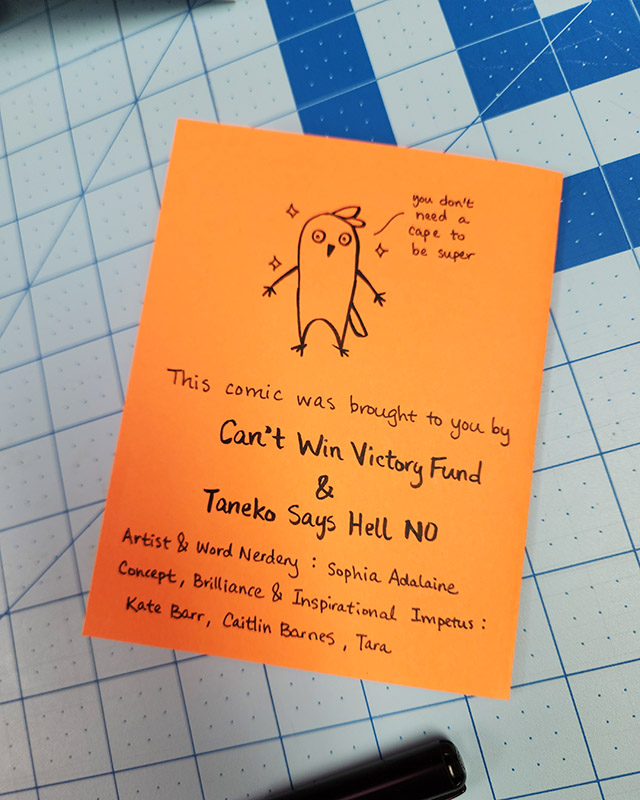 you don't
need a
cape to
be super
This comic was brought to you by
Can't Win Victory Fund
&
Taneko Says Hell NO
Artist & Word Nerdery : Sophia Adalaine
Concept, Brilliance & Inspirational Impetus :
Kate Barr, Caitlin Barnes, Tara